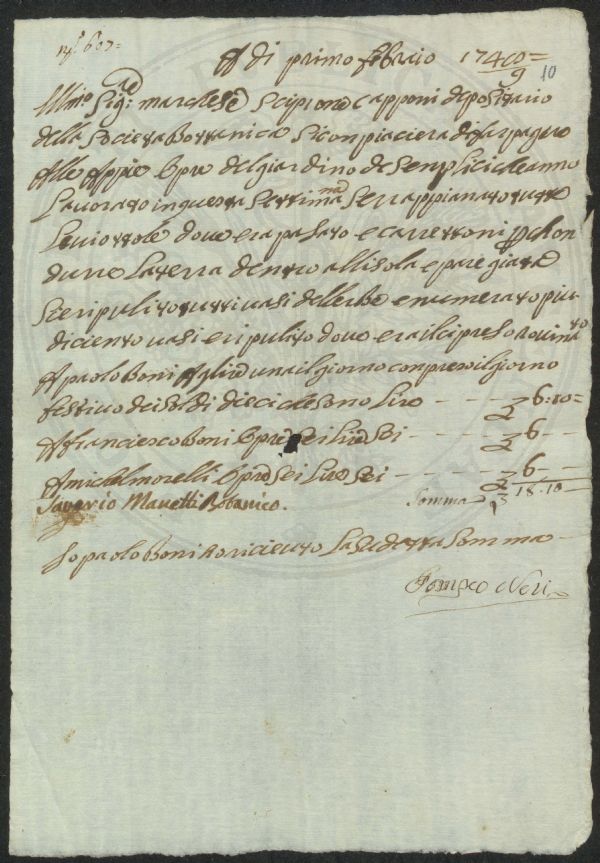 N° 607=
A di primo febraio 1749/50=
10
Illmo Sigre marchese Scipione Capponi depositario
della Societa Bottanica si conpiacera di far pagare
Alle Appie Opre del giardino de Senplici che anno
Lavorato in questa Settimna Serrappianato tutte
Le viottole dove era pasato e carrettoni p chon
durre La terra dentro all isola e paregiata
Ste ripulito tutti vasi dell erbe e numerato piu
di ciento vasi e ripulito dove era il cipreso rovinato
A paolo Boni A Lire una il giorno conpreso il giorno
festivo dei Soldi dieci che sono Lire - - - - £ 6:10=
A franciesco Boni Opre Sei Lire Sei - - - - £ 6 - -
A michel morelli Opre Sei Lire Sei - - - - £ 6 - -
Saverio Manetti Botanico. Somma £ 18.10 -
Io paolo Boni o ricieuto La Sudetta Somma -
Pompeo Neri